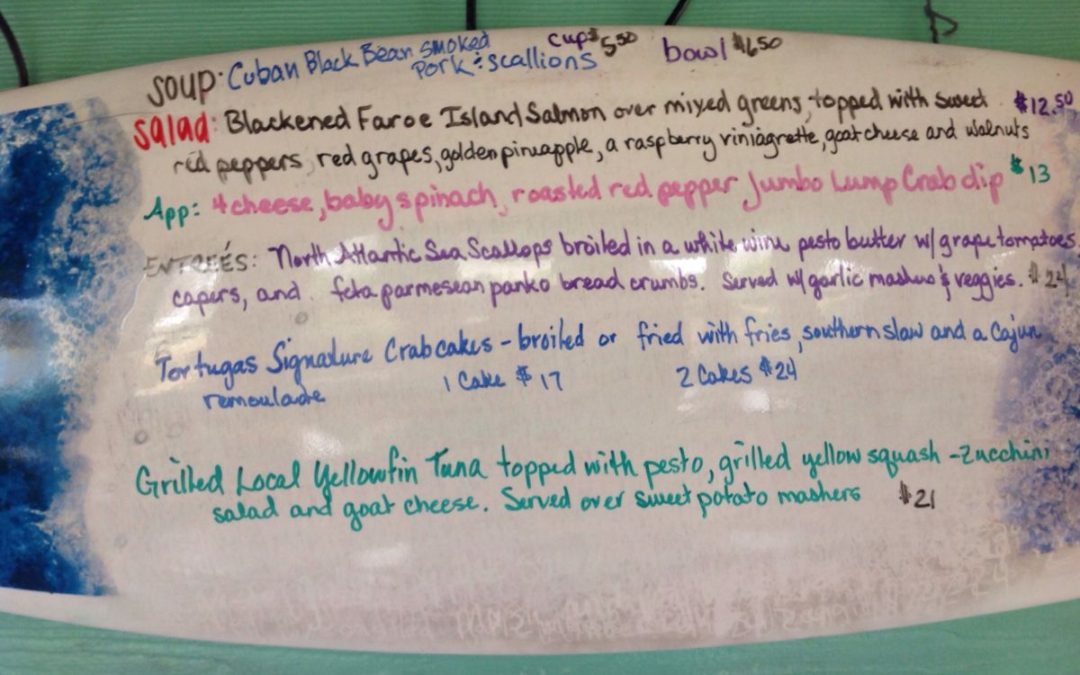 SOUP: Cuban Black Bean smoked cup $5.50 bowl $6.50
Pork & scallions
Salad: Blackened Faroe Island Salmon over mixed greens, topped with sweet $12.50
red peppers, red grapes, golden pineapple, a raspberry viniagrette, goat cheese and walnuts
App: 4 cheese, baby spinach, roasted red pepper Jumbo Lump Crab dip $13
ENTREÉS: North Atlantic Sea Scallops broiled in a white wine pesto butter w/ grape tomatoes,
capers, and feta parmesean panko bread crumbs. Served w/ garlic mashers & veggies. $24
Tortugas Signature Crabcakes - broiled or fried with fries, southern slaw and a Cajun
remoulade 1 Cake $17 2 Cakes $24
Grilled Local Yellowfin Tuna topped with pesto, grilled yellow squash - Zucchini
salad and goat cheese. Served over sweet potato mashers $21